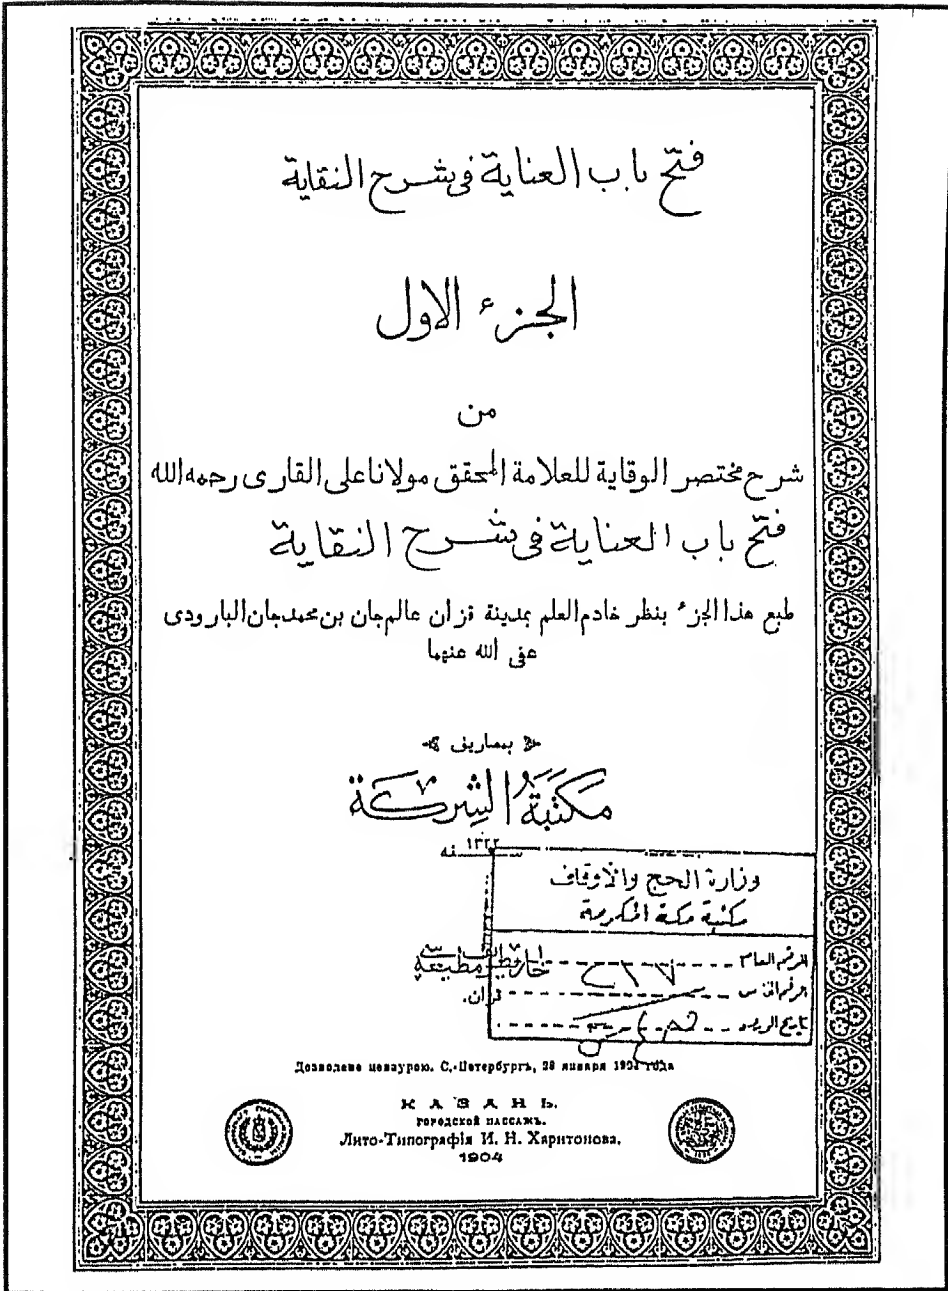 فتح باب العناية فى شرح النقاية
الجزء الاول
من
شرح مختصر الوقاية للعلامة المحقق مولانا على القارى رحمه الله
فتح باب العناية فى شرح النقاية
طبع هذا الجزء بنظر خادم العلم بمدينة قزان عالم جان بن محمد جان البارودى
عفى الله عنهما
بمصاريف
مكتبة الشركة
سنه ١٣٢٢
وزارة الحج والاوقاف
مكتبة مكة المكرمة
الرقم العام
قزان.
Дозволено цензурою. С.-Петербургъ, 28 января 1904 года
КАЗАНЬ.
ГОРОДСКОЙ ПАССАЖЪ.
Лито-Типографія И. Н. Харитонова.
1904